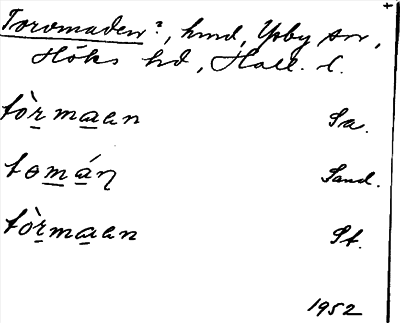 Toromaden?, hmd, Ysby sn,
Höks hd, Hall. l.
tòrmaan Sa.
tomán Sand.
tòrmaan St.
1952